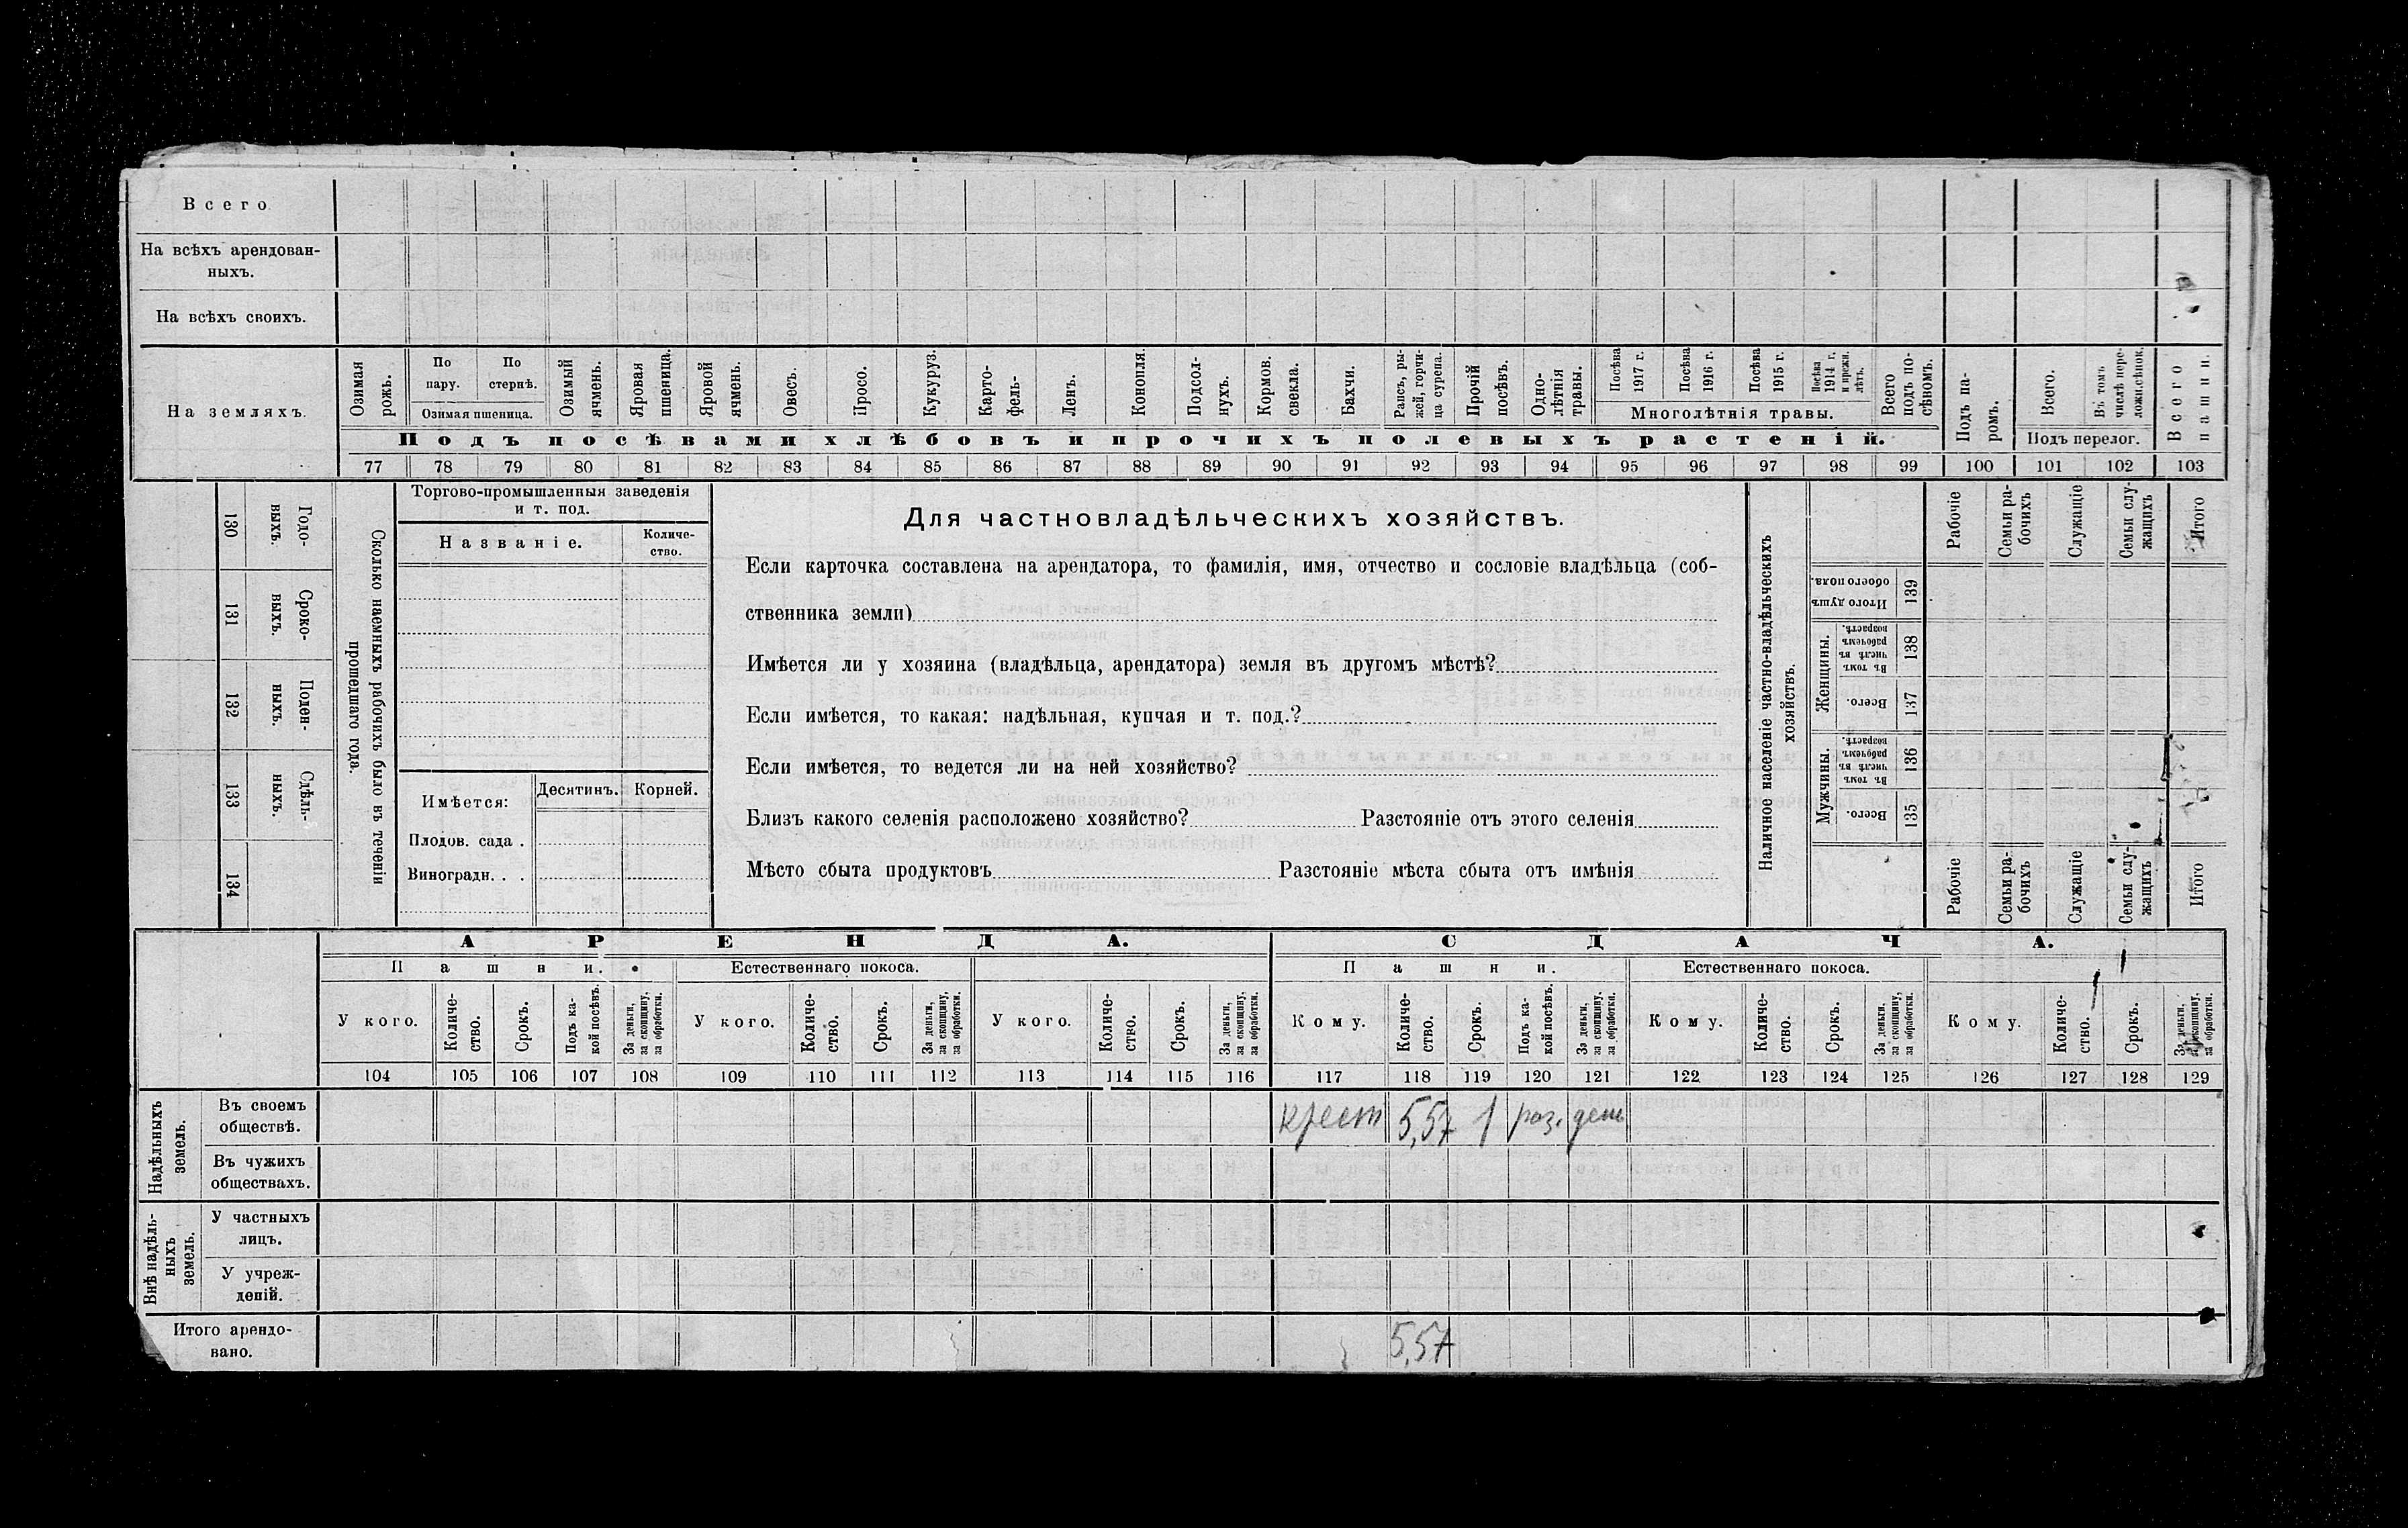 Всего
На всѣхъ арендован-
ныхъ.
На всѣхъ своихъ.
На земляхъ.
Озимая рожь.
По пару.
По стернѣ.
Озимая пшеница.
Озимый ячмень.
Яровая пшеница.
Яровой ячмень.
Овесъ.
Просо.
Кукуруз.
Карто-
фель-
Ленъ.
Конопля.
Подсол-
нухъ.
Кормов. свекла.
Бахчи.
Рапсъ, ры-
жей, горчи-
ца сурепа.
Прочій посѣвъ.
Одно-
лѣтнія травы.
Посѣва 1917 г.
Посѣва 1916 г.
Посѣва 1915 г.
Посѣва 1914 г. и прежн. лѣтъ.
Многолѣтнія травы.
Всего подъ по-
сѣвомъ.
Подъ посѣвами хлѣбовъ и прочихъ полевыхъ растеній.
Подъ па-
ромъ.
Всего.
Въ томъ числѣ пере-
дожи.сѣнок.
Подъ перелог.
Всего пашни.
77 78 79 80 81 82 83 84 85 86 87 88 89 90 91 92 93 94 95 96 97 98 99 100 101 102 103
130 Годо-
выхъ.
131 Сроко-
выхъ.
132 Поден-
ныхъ.
133 Сдѣль-
ныхъ.
134
Сколько наемныхъ рабочихъ было въ теченіи
прошедшаго года.
Торгово-промышленныя заведенія
и т. под.
Названіе.
Количе-
ство.
Имѣется:
Десятинъ.
Корней.
Плодов. сада .
Виноградн. . .
Для частновладѣльческихъ хозяйствъ.
Если карточка составлена на арендатора, то фамилія, имя, отчество и сословіе владѣльца (соб-
ственника земли)
Имѣется ли у хозяина (владѣльца, арендатора) земля въ другомъ мѣстѣ?
Если имѣется, то какая: надѣльная, купчая и т. под.?
Если имѣется, то ведется ли на ней хозяйство?
Близъ какого селенія расположено хозяйство? Разстояніе отъ этого селенія
Мѣсто сбыта продуктовъ Разстояніе мѣста сбыта отъ имѣнія
Наличное населеніе частно-владѣльческихъ
хозяйствъ.
Рабочіе
Семьи ра-
бочихъ
Служащіе
Семьи слу-
жащихъ
Итого
Итого душъ обоего пола.
139
Женщины.
Въ томъ числѣ въ рабочемъ возрастѣ.
138
Всего.
137
Мужчины.
Въ томъ числѣ въ рабочемъ возрастѣ.
136
Всего.
135
Рабочіе
Семьи ра-
бочихъ
Служащіе
Семьи слу-
жащихъ
Итого
АРЕНДА.
СДАЧА.
Пашни.
Естественнаго покоса.
Пашни.
Естественнаго покоса.
У кого.
Количе-
ство.
Срокъ.
Подъ ка-
кой посѣвъ.
За деньги, за скопщину, за обработки.
У кого.
Количе-
ство.
Срокъ.
За деньги, за скопщину, за обработки.
У кого.
Количе-
ство.
Срокъ.
За деньги, за скопщину, за обработки.
Кому.
Количе-
ство.
Срокъ.
Подъ ка-
кой посѣвъ.
За деньги, за скопщину, за обработки.
Кому.
Количе-
ство.
Срокъ.
За деньги, за скопщину, за обработки.
Кому.
Количе-
ство.
Срокъ.
За деньги, за скопщину, за обработки.
104 105 106 107 108 109 110 111 112 113 114 115 116 117 118 119 120 121 122 123 124 125 126 127 128 129
Надѣльныхъ
земель.
Въ своемъ
обществѣ.
крест 5,57 1 раз. день
Въ чужихъ
обществахъ.
Внѣ надѣль-
ныхъ
земель.
У частныхъ
лицъ.
У учреж-
деній.
Итого арендо-
вано.
5,57